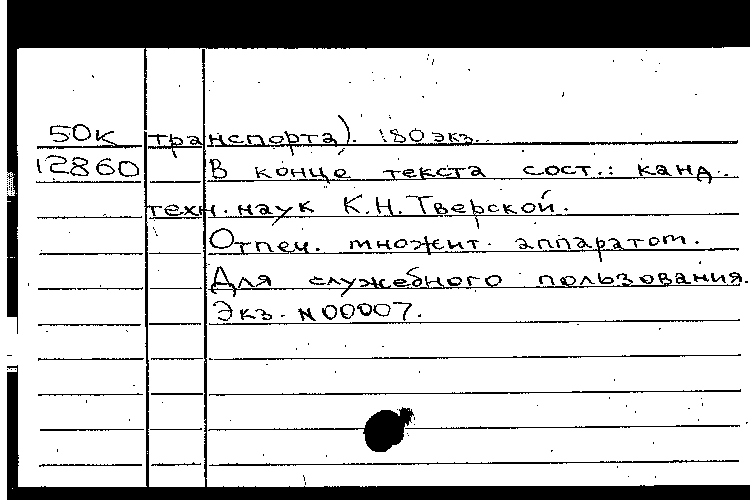 50К транспорта). 180 экз.
12860 В конце текста сост.: канд.
техн. наук К.Н. Тверской.
Отпеч. множит. аппаратом.
Для служебного пользования.
Экз. N 00007.